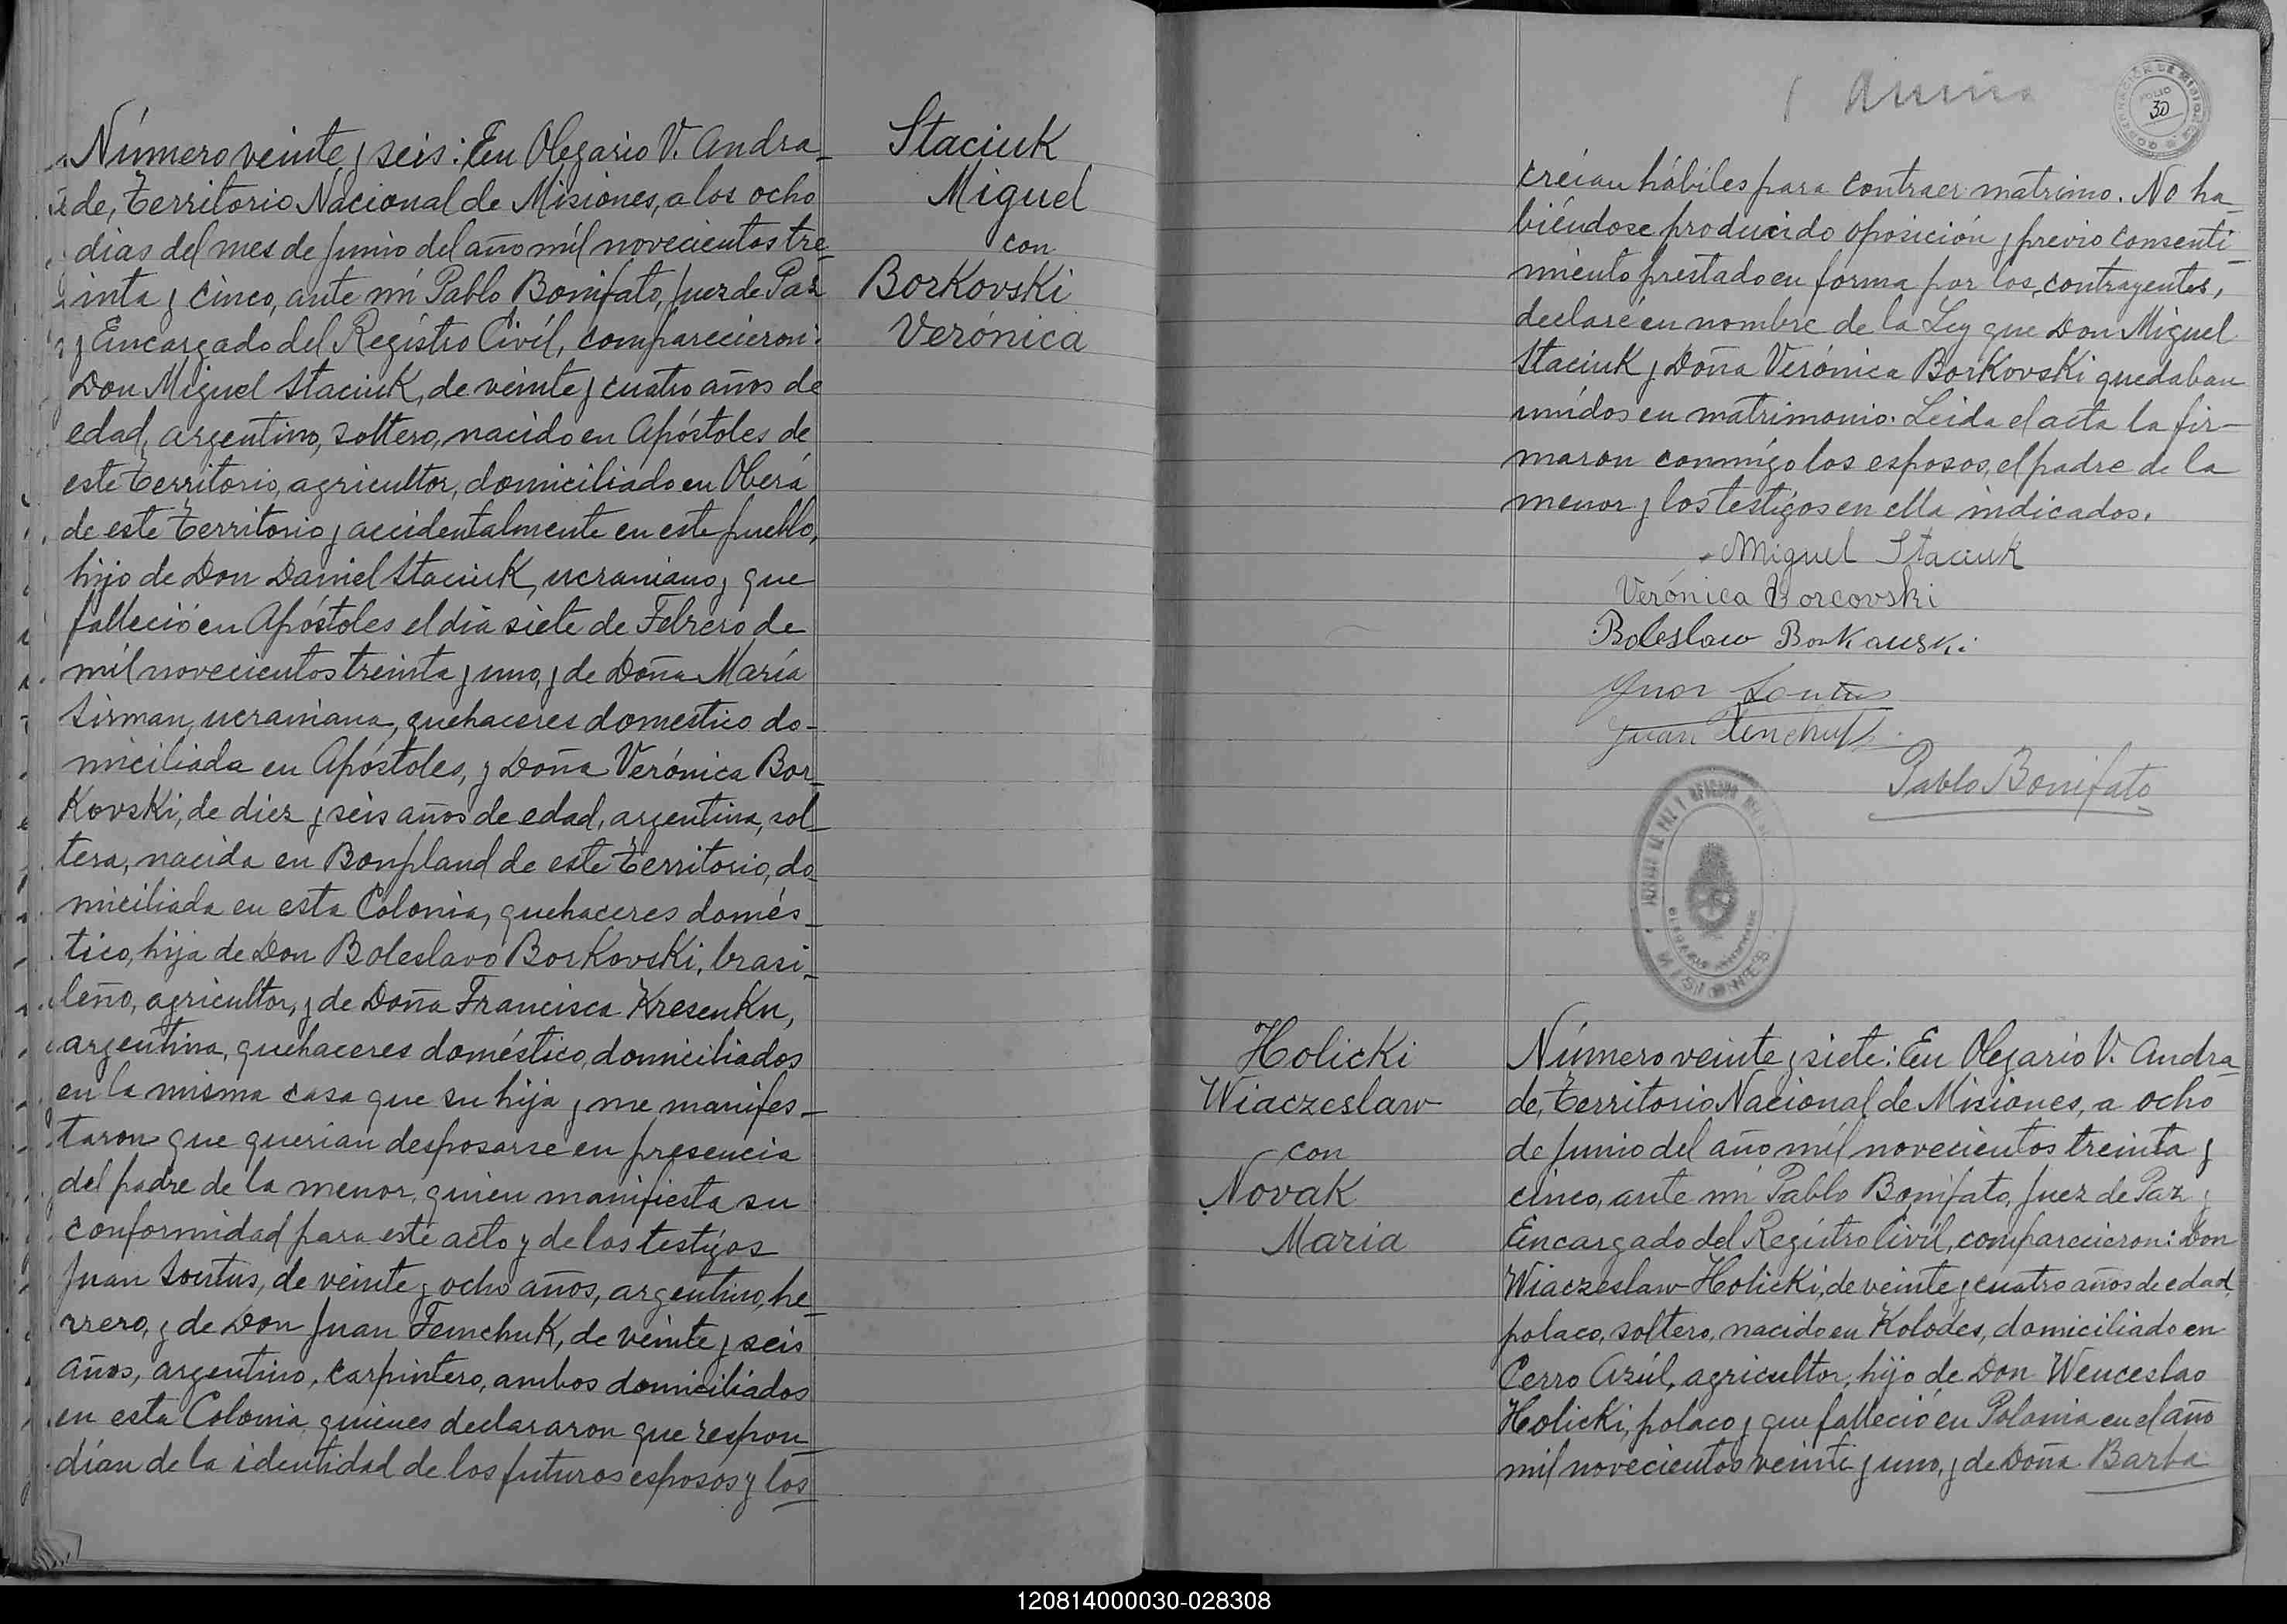 Número veinte y seis: En Olegario V. Andra-
de, Territorio Nacional de Misiones, a los ocho
dias del mes de Junio del año mil novecientos tre-
inta y cinco, ante mi Pablo Bonifato, Juez de Paz
y Encargado del Registro Civil, comparecieron:
Don Miguel Staciuk, de veinte y cuatro años de
edad, argentino, soltero, nacido en Apóstoles de
este territorio, agricultor, domiciliado en Oberá
de este territorio y accidentalmente en este pueblo,
hijo de Don Daniel Staciuk, ucraniano y que
falleció en Apóstoles el dia siete de Febrero de
mil novecientos treinta y uno, y de Doña María
Sirman, ucraniana, quehaceres domestico do-
miciliada en Apóstoles, y Doña Verónica Bor-
Kovski, de diez y seis años de edad, argentina, sol-
tera, nacida en Bonpland de este territorio, do-
miciliada en esta Colonia, quehaceres domés-
tico, hija de Don Boleslavo BorKovski, brasi-
leño, agricultor, y de Doña Francisca KresenKu,
argentina, quehaceres doméstico, domiciliados
en la misma casa que su hija y me manifes-
taron que querian desposarse en presencia
del padre de la menor, quien manifiesta su
conformidad para este acto y de los testigos
Juan Soutus, de veinte y ocho años, argentino, he-
rrero, y de Don Juan Temchuk, de veinte y seis
años, argentino, carpintero, ambos domiciliados
en esta Colonia quienes declararon que respon-
dían de la identidad de los futuros esposos y los
Staciuk
Miguel
con
BorKovski
Verónica
FOLIO
30
creían hábiles para contraer matrimo. No ha-
biéndose producido oposición y previo consenti-
miento prestado en forma por los contrayentes,
declaré en nombre de la Ley que Don Miguel
Staciuk y Doña Verónica BorKovski quedaban
unidos en matrimonio. Leida el acta la fir-
maron conmigo los esposos, el padre de la
menor y los testigos en ella indicados.
Miguel Staciuk
Verónica Borcovski
Boleslaw Borkauski
Juan Tenchuk
Pablo Bonifato
MISIONES
Holicki
Wiaczeslaw
con
Novak
Maria
Número veinte y siete: En Olegario V. Andra-
de, Territorio Nacional de Misiones, a ocho
de Junio del año mil novecientos treinta y
cinco, ante mi Pablo Bonifato, Juez de Paz y
Encargado del Registro Civil, comparecieron: Don
Wiaczeslaw Holicki, de veinte y cuatro años de edad,
polaco, soltero, nacido en Kolodes, domiciliado en
Cerro Azúl, agricultor, hijo de Don Wenceslao
Holicki, polaco y que falleció en Polonia en el año
mil novecientos veinte y uno, y de Doña Barba
120814000030-028308